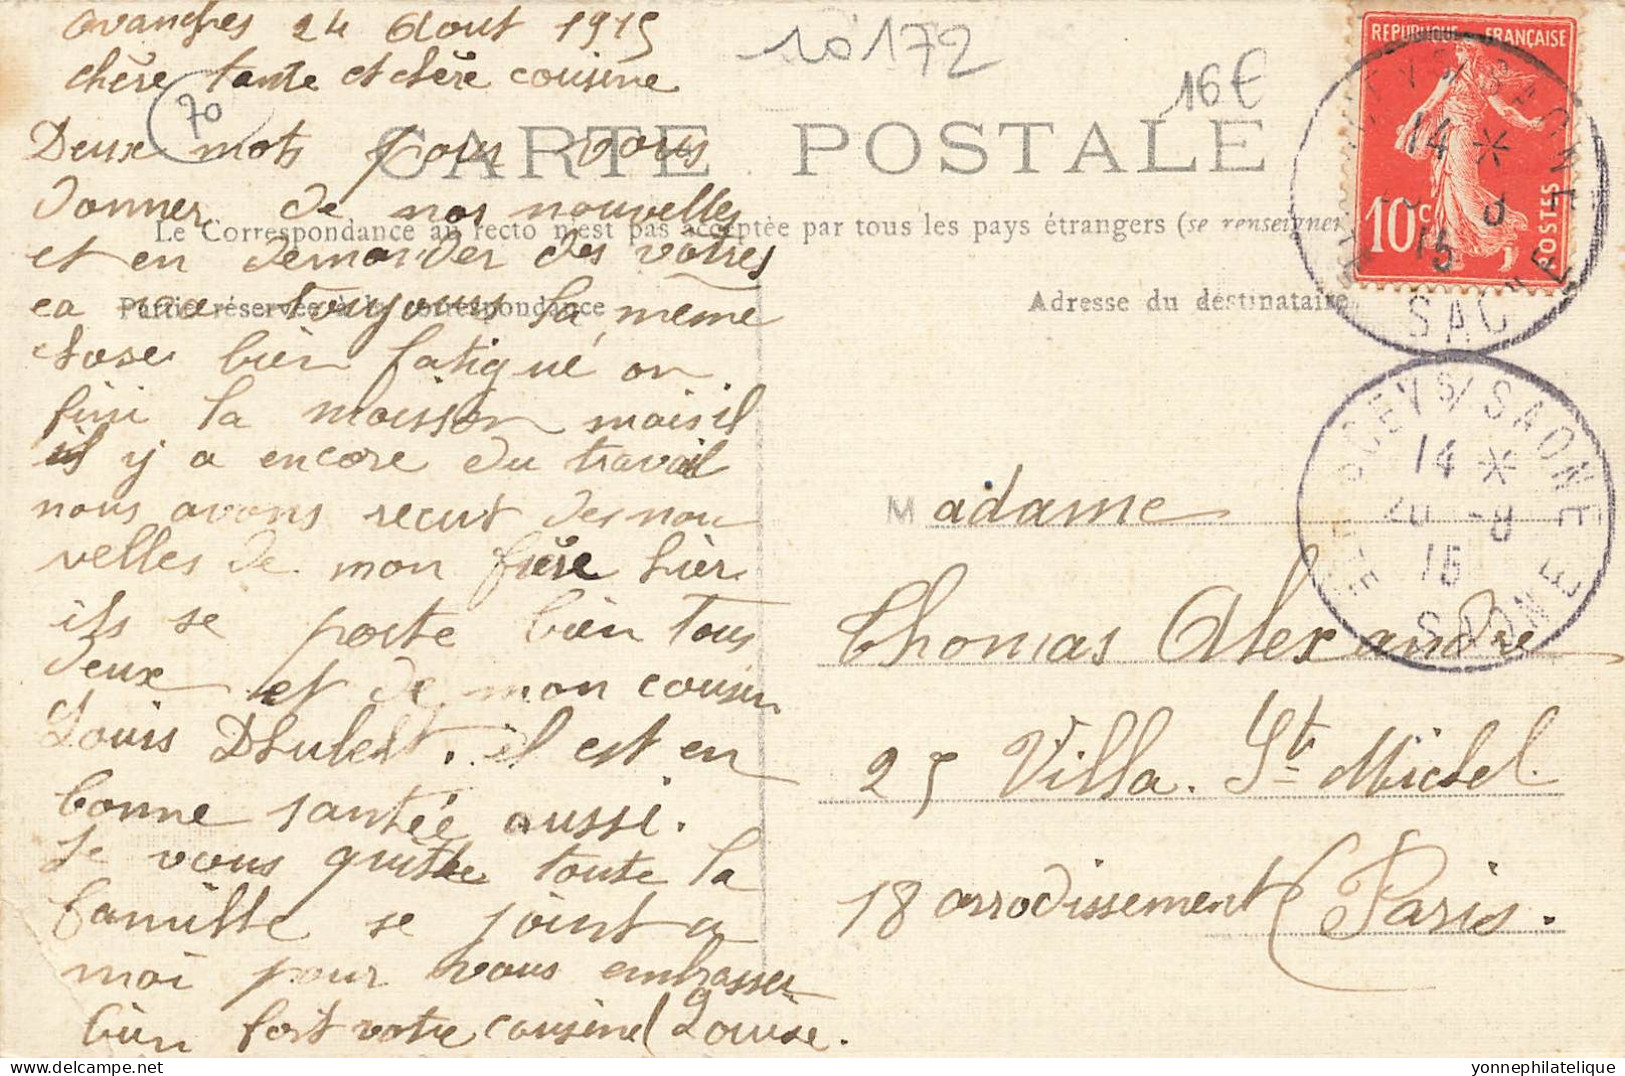 ovanches 24 Aout 1915
chère tante et chère cousine
Deux mots pour vous
donner de nos nouvelles
et en demander des votres
ca va toujours la même
chose bien fatigué on
fini la moisson mais il
il y a encore du travail
nous avons recut des nou
velles de mon frère hièr
ils se porte bièn tous
deux et de mon cousin
Louis Dhubert. il est en
bonne santée aussi.
Je vous quitte toute la
famille se joint a
moi pour vous embrasser
bièn fort votre cousine Louise.
70
10172
16€
CARTE POSTALE
Le Correspondance au recto n'est pas acceptée par tous les pays étrangers (se renseigner
Partie réservée à la correspondance
Adresse du destinataire
REPUBLIQUE FRANÇAISE
10c
POSTES
14 *
8
15
SCEY S/ SAONE
14 *
8
15
HTE SAONE
Madame
Thomas Alexandre
25 Villa. St Michel.
18 arrodissement Paris.
yonnephilatelique